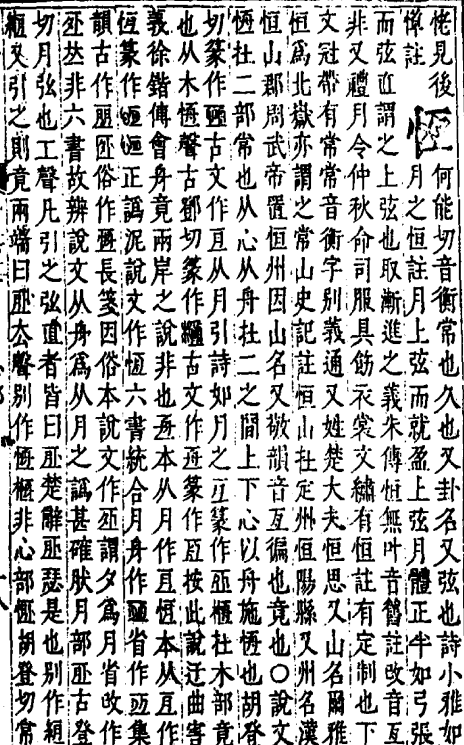 恡見後
愞註　恆　何能切音衡常也久也又卦名又弦也詩小雅如
月之恒註月上弦而就盈上弦月體正半如弓張
而弦直謂之上弦也取漸進之義朱傳恒無叶音舊註改音亙
非又禮月令仲秋命司服具飭衣裳文繡有恒註有定制也下
文冠帶有常常音衡字別義通又姓楚大夫恒思又山名爾雅
恒爲北嶽亦謂之常山史記註恒山在定州恒陽縣又州名漢
恒山郡周武帝置恒州因山名又敬韻音亙徧也竟也○說文
恆在二部常也从心从舟在二之間上下心以舟施恆也胡登
切篆作古文作亙从月引詩如月之亙篆作在木部竟
也从木恆聲古鄧切篆作古文作篆作按此說迂曲害
義徐鍇傅會身竟兩岸之說非也本从月作恆本从亙作
恆篆作正譌泥說文作恆六書統合月身作省作集
韻古作俗作長箋因俗本說文作謂夕爲月省改作
非六書故辨說文从身爲从月之譌甚確肰月部古登
切月弦也工聲凡引之弦直者皆曰楚辭瑟是也別作緪
又引之則竟兩端曰去聲別作非心部恆胡登切常